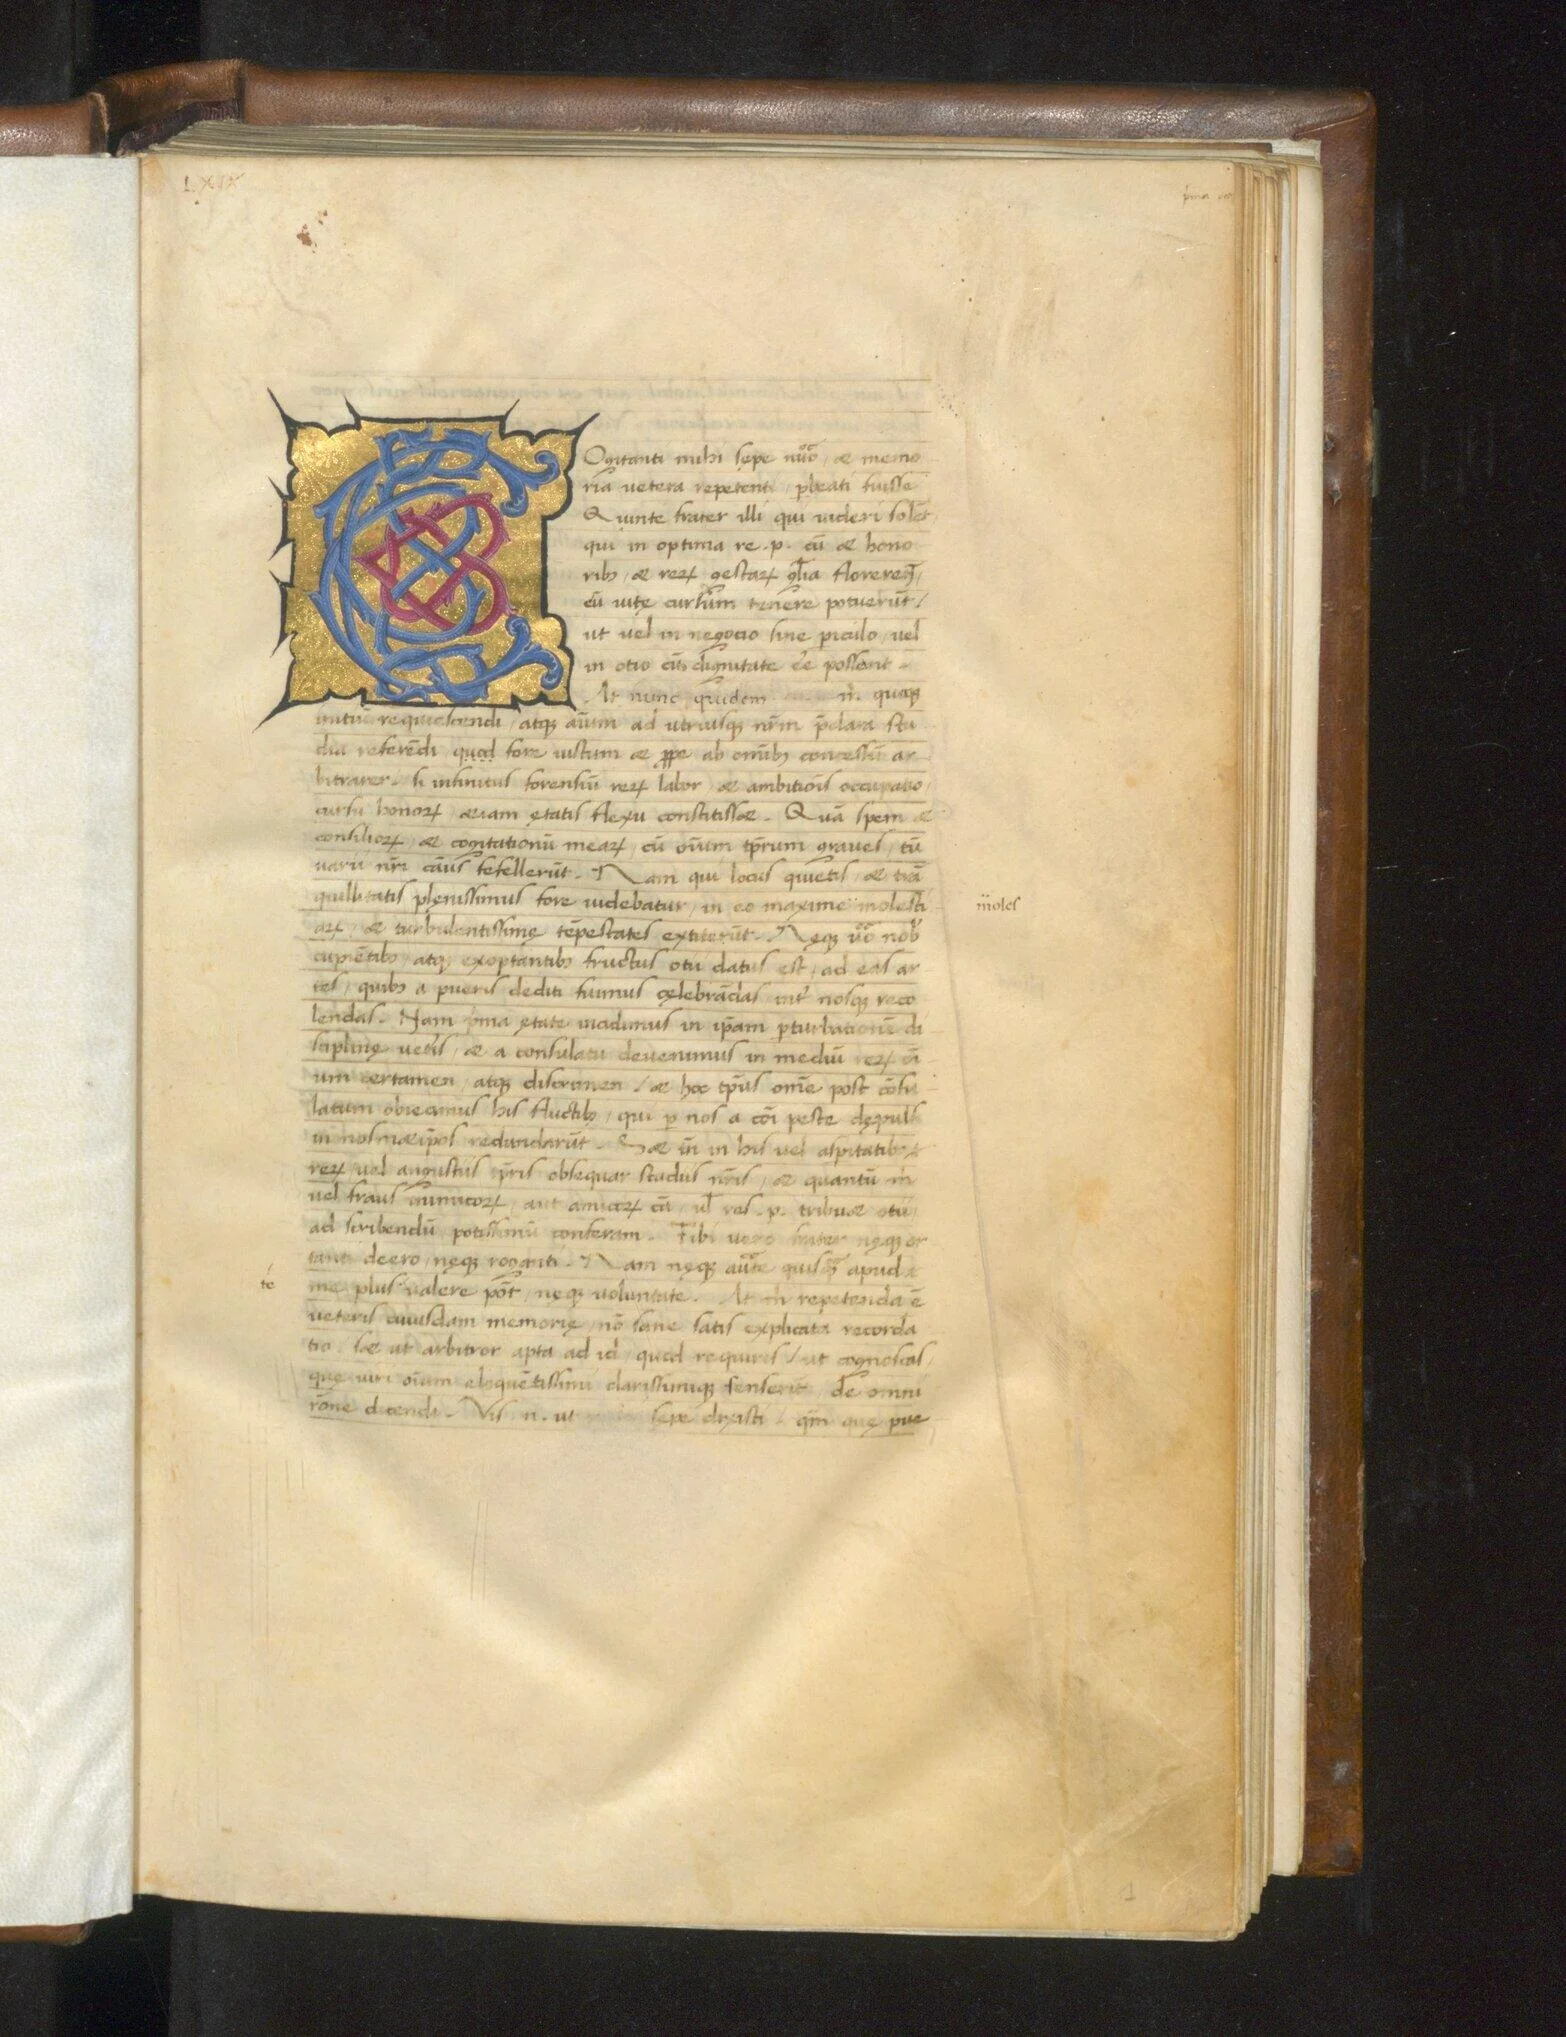 L.XIX
pma
COgitanti mihi sepe nūo, & memo
ria vetera repetenti, pbeati fuisse
Quinte frater illi qui videri solēt
qui in optima re .p. cū & hono
ribꝫ, & reꝝ gestaꝝ gl̄ia florerēt,
cū vitę cursum tenere potuerūt /
ut vel in negocio sine piculo, vel
in otio cū dignitate eē possent.
At nunc quidem n̄. quaqꝫ
initiū requiescendi, atqꝫ aīum ad utriusqꝫ nr̄m p̄clara stu
dia referēdi quod fore iustum & ꝓpe ab omībꝫ concessū ar
bitrarer. si infinitus forensiū reꝝ labor, & ambitiōis occupatio,
cursu honoꝝ, &iam ętatis flexu constitiss&. Quā spem &
consilioꝝ, & cogitationū meaꝝ, cū oīum tp̄rum graves, tū
varii nr̄i cāus fefellerūt. Nam qui locus quietis, & trā
quillitatis plenissimus fore videbatur, in eo maxime molesti
moles
aꝝ, & turbulentissimę tēpestates extiterūt. Neqꝫ v̄o nob̄
cupiētibꝫ, atqꝫ exoptantibꝫ fructus otii datus est, ad eas ar
tes, quibꝫ a pueris dediti fuimus celebrādas, int' nosqꝫ reco
lendas. Nam p̄ma ętate incidimus in ip̄am pturbationē di
sciplinę vet'is, & a consulatu devenimus in mediū reꝝ oī
um certamen, atqꝫ discrimen, & hoc tp̄us om̄e post cōsu
latum obiecimus his fluctibꝫ, qui p nos a cōi peste depulsi
in nosm&ip̄os redundarūt. S& tn̄ in his vel aspitatibꝫ
reꝝ, vel angustiis tp̄ris obsequar studiis nr̄is, & quantū m̄
vel fraus inimicoꝝ, aut amicoꝝ cā, vl̄ res .p. tribu& otii,
ad scribendū potissimū conferam. Tibi vero frater neqꝫ or
tanti deero, neqꝫ roganti. Nam neqꝫ auc̄te quisqꝫ apud
té
me plus valere pōt, neqꝫ voluntate. At m̄ repetenda ē
veteris cuiusdam memorię, nō sane satis explicata recorda
tio, s& ut arbitror apta ad id, quod requiris, ut cognoscas,
quę viri oīum eloquētissimi clarissimiqꝫ senserīt, de omni
rōne dicendi. Vis .n. ut sepe dixisti, qm̄ quę pue
1